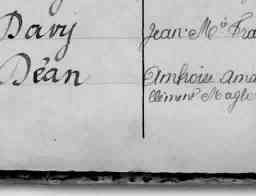 Davy Jean-Mie Fra
Déan Ambroise Ama
Clément Maglo